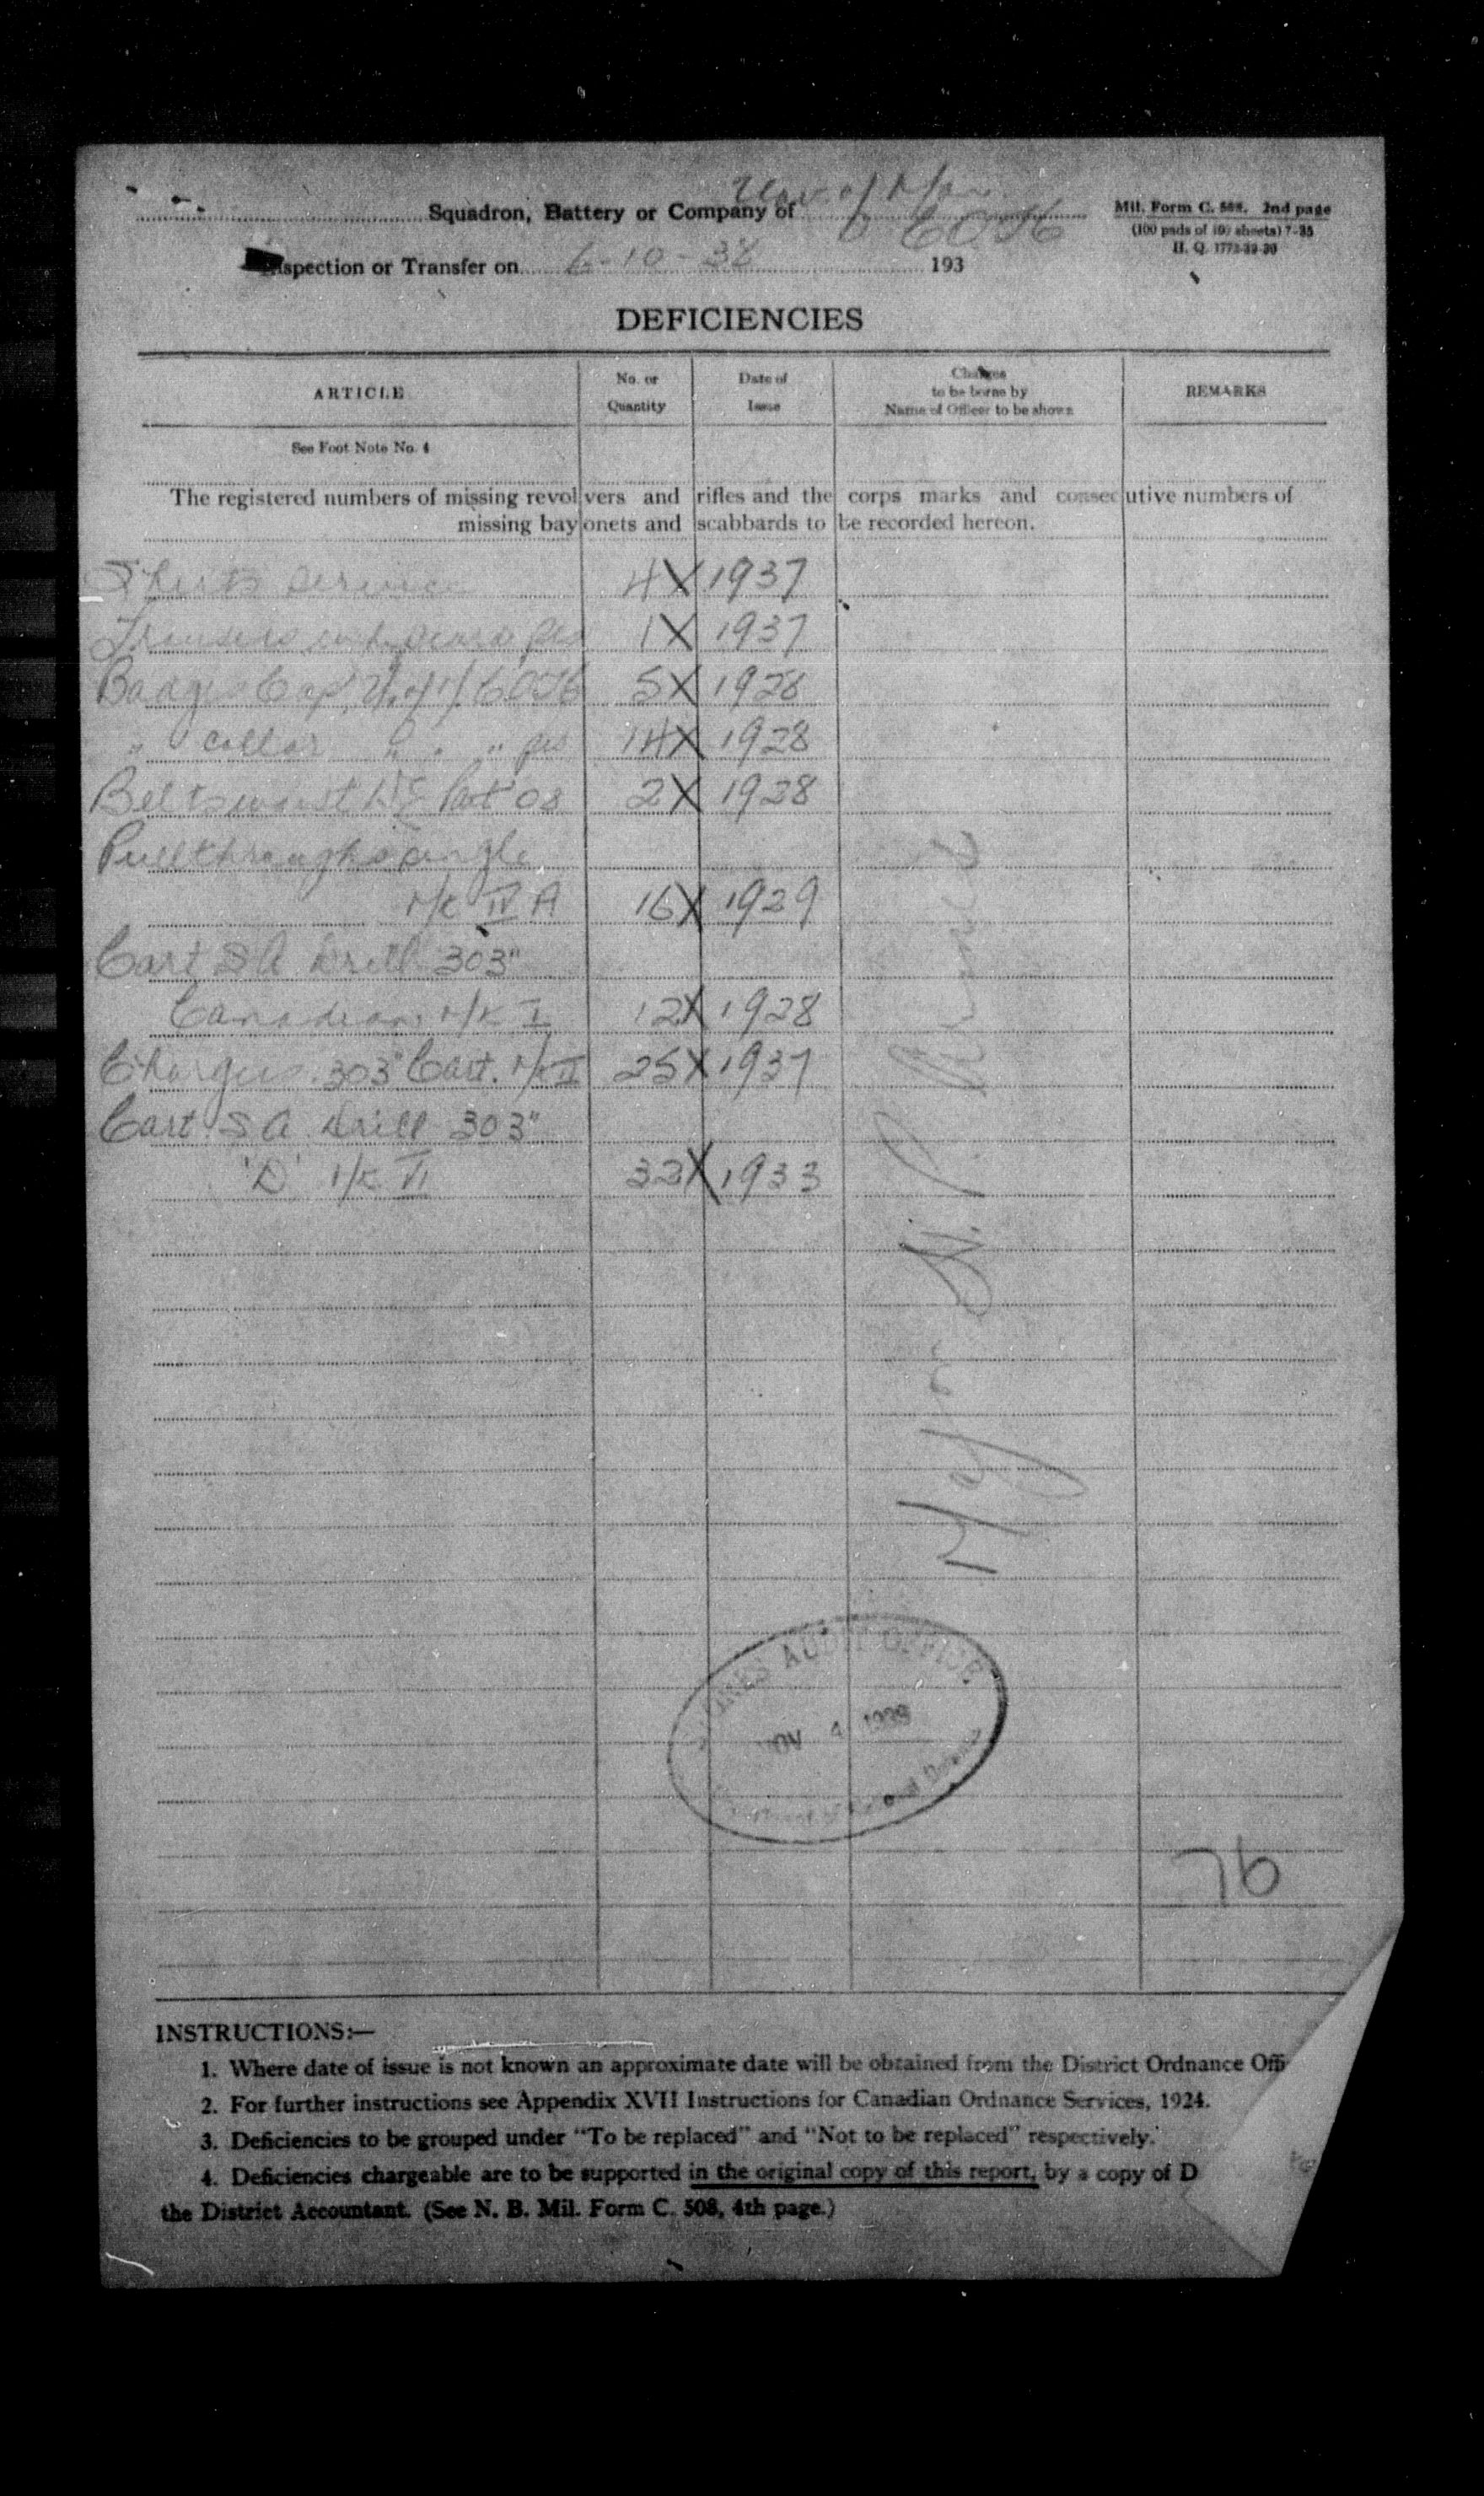 Univ. of Man.
Squadron, Battery or Company of COTC
Mil. Form C. 508. 2nd page
(100 pads of 100 sheets) 7-35
H. Q. 1772-39-30
Inspection or Transfer on 6-10-38 193
DEFICIENCIES
ARTICLE
No. or Quantity
Date of Issue
Charges to be borne by Name of Officer to be shown
REMARKS
See Foot Note No. 4
The registered numbers of missing revolvers and rifles and the corps marks and consecutive numbers of
missing bayonets and scabbards to be recorded hereon.
Shirts service 4X 1937
Trousers prs 1X 1937
Badges Cap, U. of M. COTC 5X 1928
" collar " " " prs 14X 1928
Belts waist W.E. Patt 08 2X 1928
Pullthroughs single
Mk IV A 16X 1929
Cart S A Drill 303"
Canadian Mk I 12X 1928
Chargers .303" Cart. Mk II 25X 1937
Cart. S A Drill 303"
'D' Mk VI 32X 1933
Major
STORES AUDIT OFFICE
NOV 4 1938
Department of National Defence
76
INSTRUCTIONS:—
1. Where date of issue is not known an approximate date will be obtained from the District Ordnance Offi
2. For further instructions see Appendix XVII Instructions for Canadian Ordnance Services, 1924.
3. Deficiencies to be grouped under "To be replaced" and "Not to be replaced" respectively.
4. Deficiencies chargeable are to be supported in the original copy of this report, by a copy of D
the District Accountant. (See N. B. Mil. Form C. 508, 4th page.)